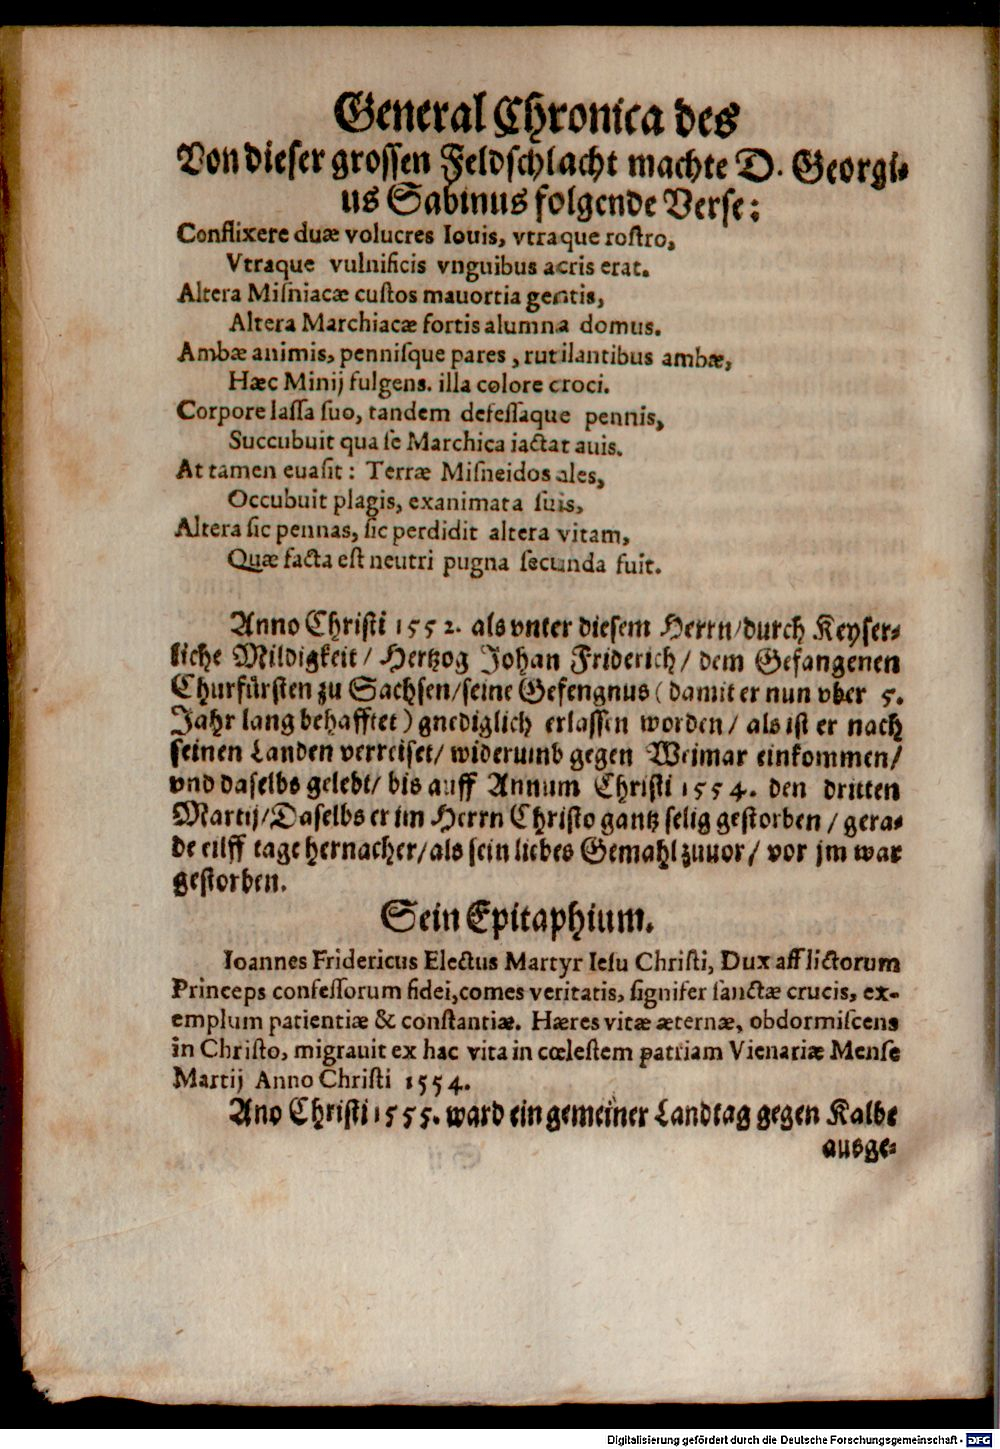 General Chronica des
Von dieser grossen Feldschlacht machte D. Georgi-
us Sabinus folgende Verse:
Conflixere duæ volucres Iouis, vtraque rostro,
Vtraque vulnificis vnguibus acris erat.
Altera Misniacæ custos mauortia gentis,
Altera Marchiacæ fortis alumna domus.
Ambæ animis, pennisque pares, rutilantibus ambæ,
Hæc Minij fulgens. illa colore croci.
Corpore lassa suo, tandem defessaque pennis,
Succubuit qua se Marchica iactat auis.
At tamen euasit: Terræ Misneidos ales,
Occubuit plagis, exanimata suis,
Altera sic pennas, sic perdidit altera vitam,
Quæ facta est neutri pugna secunda fuit.
Anno Christi 1552. als vnter diesem Herrn/durch Keyser-
liche Mildigkeit/ Hertzog Johan Friderich/ dem Gefangenen
Churfürsten zu Sachsen/seine Gefengnus (damit er nun vber 5.
Jahr lang behafftet) gnediglich erlassen worden/ als ist er nach
seinen Landen verreiset/ widerumb gegen Weimar einkommen/
vnd daselbs gelebt/ bis auff Annum Christi 1554. den dritten
Martij/Daselbs er im Herrn Christo gantz selig gestorben / gera-
de eilff tage hernacher/als sein liebes Gemahl zuuor/ vor jm war
gestorben.
Sein Epitaphium.
Ioannes Fridericus Electus Martyr Iesu Christi, Dux afflictorum
Princeps confessorum fidei,comes veritatis, signifer sanctæ crucis, ex-
emplum patientiæ & constantiæ. Hæres vitæ æternæ, obdormiscens
in Christo, migrauit ex hac vita in cœlestem patriam Vienariæ Mense
Martij Anno Christi 1554.
Ano Christi 1555. ward ein gemeiner Landtag gegen Kalbe
ausge-
Digitalisierung gefördert durch die Deutsche Forschungsgemeinschaft - DFG